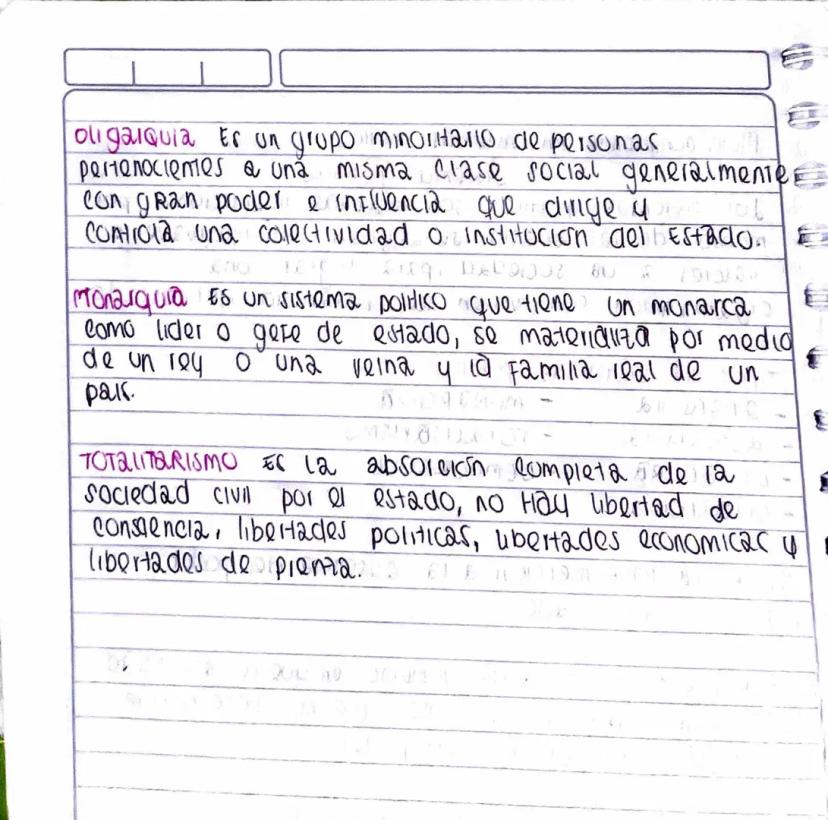 Oligarquia Es un grupo minoritario de personas
pertenecientes a una misma clase social generalmente
con gran poder e influencia que dirige y
controla una colectividad o institución del Estado.
Monarquia Es un sistema politico que tiene un monarca
como lider o gefe de estado, se materializa por medio
de un rey o una reina y la familia real de un
pais.
TOTALITARISMO Es la absorción completa de la
sociedad civil por el estado, no hay libertad de
consiencia, libertades politicas, libertades economicas y
libertades de prenza.